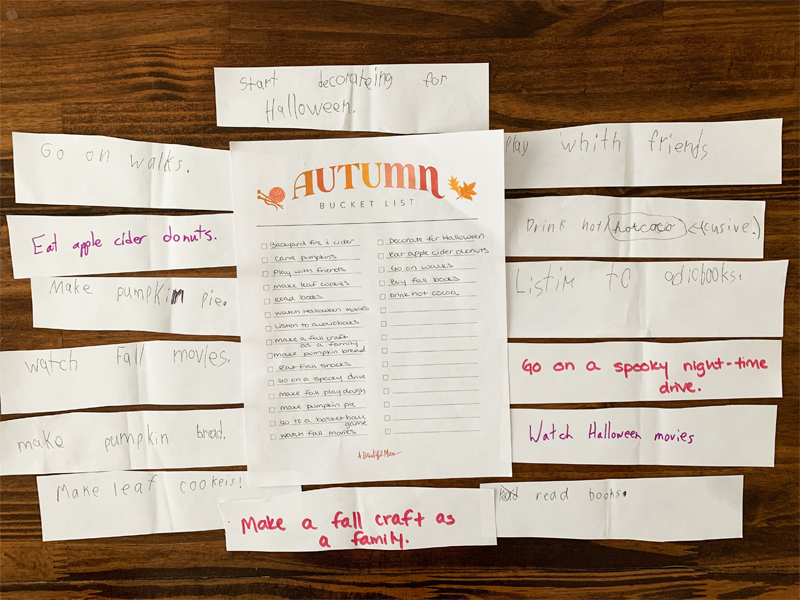 Start decorateing for
Halloween.
Go on walks.
Eat apple cider donuts.
Make pumpkin pie.
watch Fall movies.
make pumpkin bread.
Make leaf cookeis!
AUTUMN
BUCKET LIST
Backyard fire & cider
Carve pumpkins
Play with friends
Make leaf cookies
Read books
Watch Halloween movies
Listen to audiobooks
Make a fall craft
as a family
Make pumpkin bread
Eat fall snacks
Go on a spooky drive
Make fall playdough
Make pumpkin pie
Go to a basketball
game
Watch fall movies
Decorate for Halloween
Eat apple cider donuts
Go on walks
Buy fall books
Drink hot cocoa
A Beautiful Mess
Play whith friends
Drink hot hotcoco
Listin to odiobooks.
Go on a spooky night-time
drive.
Watch Halloween movies
read books.
Make a fall craft as
a family.